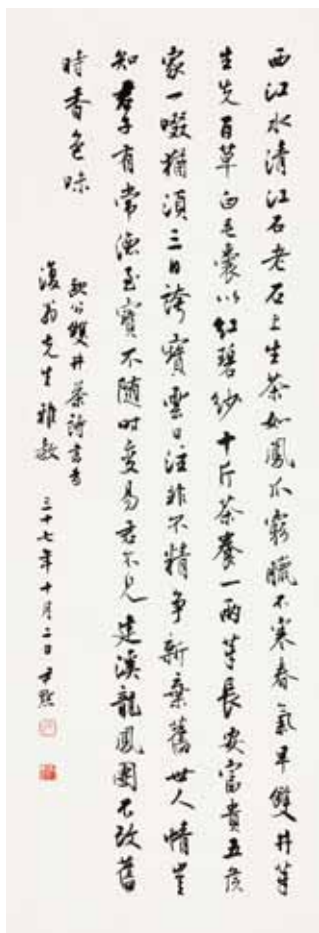 西江水清江石老石上生茶如鳳爪窮臘不寒春氣早雙井芽
生先百草白毛囊以紅碧紗十斤茶養一兩芽長安富貴五侯
家一啜猶須三日誇寶雲日注非不精争新棄舊世人情豈
知君子有常德至寶不隨时變易君不見建溪龍鳳團不改舊
時香色味
歐公雙井茶詩書奉
復翁先生雅教 三十七年十月二日 尹默